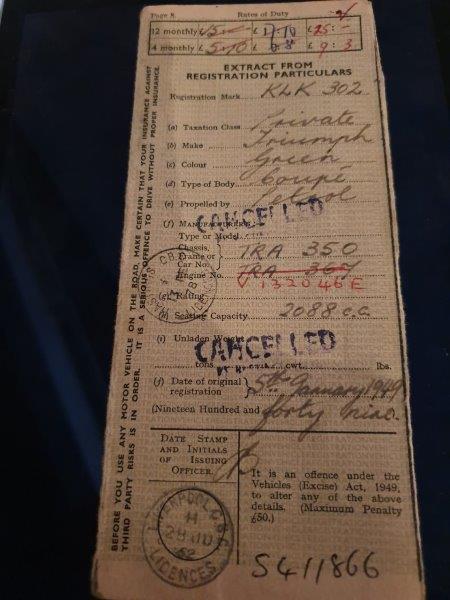 Page 8. Rates of Duty
12 monthly £ 15 £ 17/10 £ 25 : -
4 monthly £ 5.10 £ £ 9 : 3
EXTRACT FROM
REGISTRATION PARTICULARS
Registration Mark KLK 302
(a) Taxation Class Private
(b) Make Triumph
(c) Colour Green
(d) Type of Body Coupé
(e) Propelled by Petrol
CANCELLED
(f) MANUFACTURER'S
Type or Model
Chassis,
Frame or
Car No. TRA 350
Engine No. TRA 367
132046E
(g) Rating
(h) Seating Capacity 2088 c.c.
(i) Unladen Weight
CANCELLED
tons cwt. lbs.
(j) Date of original
registration } 5th January 1949
(Nineteen Hundred and forty nine.
DATE STAMP
AND INITIALS
OF ISSUING
OFFICER.
It is an offence under the
Vehicles (Excise) Act, 1949,
to alter any of the above
details. (Maximum Penalty
£50.)
LIVERPOOL C.B.C.
62
LICENCES
S411866
BEFORE YOU USE ANY MOTOR VEHICLE ON THE ROAD, MAKE CERTAIN THAT YOUR INSURANCE AGAINST
THIRD PARTY RISKS IS IN ORDER. IT IS A SERIOUS OFFENCE TO DRIVE WITHOUT PROPER INSURANCE.